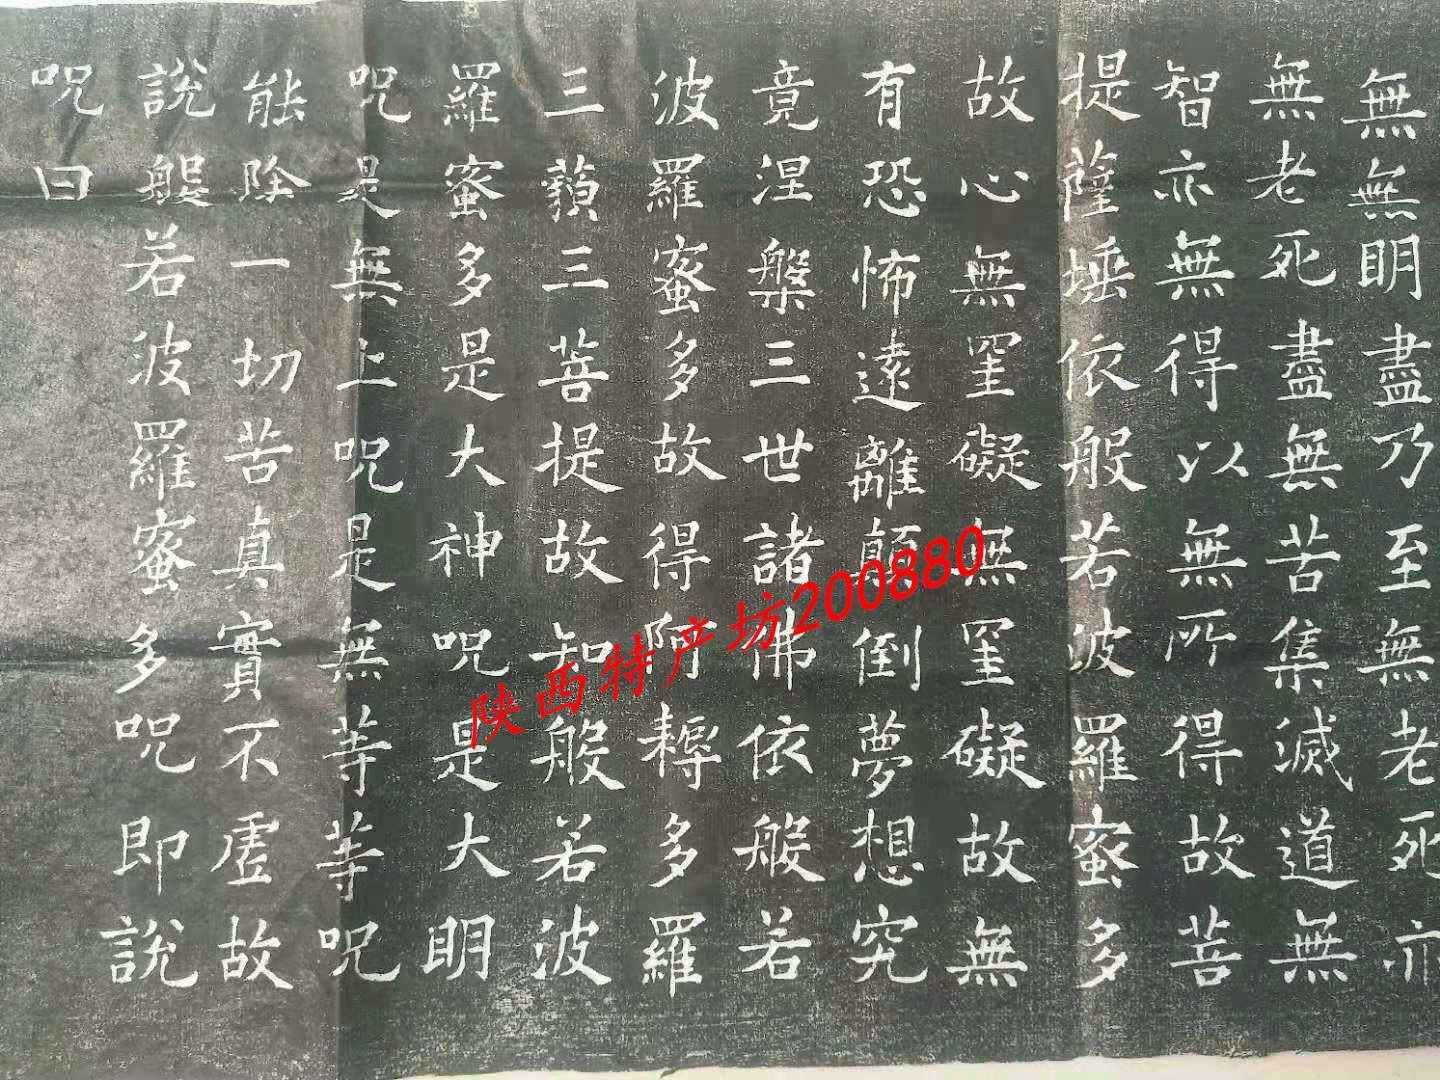 無無明盡乃至無老死亦
無老死盡無苦集滅道無
智亦無得以無所得故菩
提薩埵依般若波羅蜜多
故心無罣礙無罣礙故無
有恐怖遠離顛倒夢想究
竟涅槃三世諸佛依般若
波羅蜜多故得阿耨多羅
三藐三菩提故知般若波
羅蜜多是大神呪是大明
呪是無上呪是無等等呪
能除一切苦真實不虛故
說般若波羅蜜多呪即說
呪曰
陕西特产坊200880